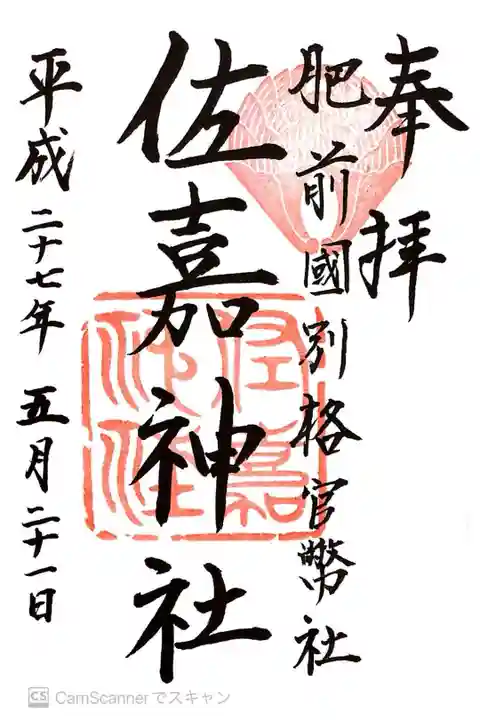 奉拝
肥前國別格官幣社
佐嘉神社
平成二十七年五月二十一日
佐嘉神社
CS CamScannerでスキャン